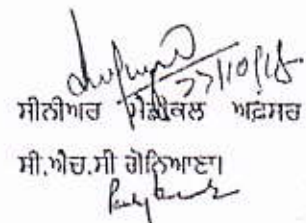 27/10/15
ਸੀਨੀਅਰ ਮੈਡੀਕਲ ਅਫ਼ਸਰ
ਸੀ.ਐਚ.ਸੀ ਗੋਨਿਆਣਾ।